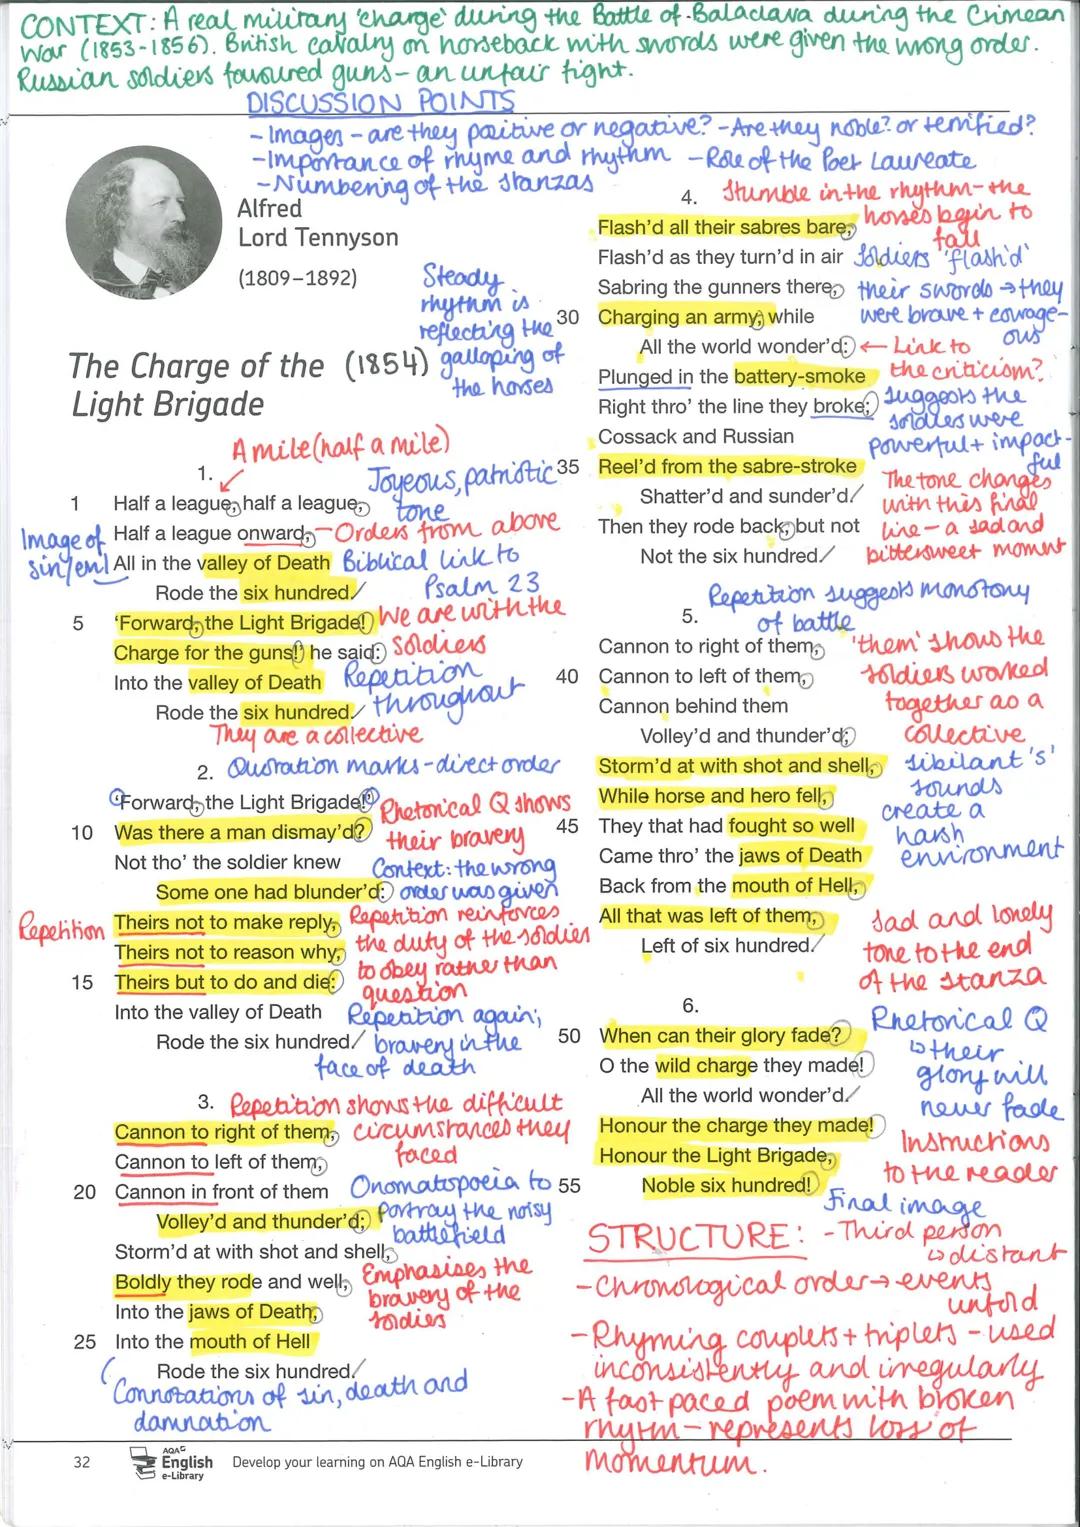 CONTEXT: A real military 'charge' during the Battle of Balaclava during the Crimean
War (1853-1856). British cavalry on horseback with swords were given the wrong order.
Russian soldiers favoured guns - an unfair fight.
DISCUSSION POINTS
- Images - are they positive or negative? - Are they noble? or terrified?
- Importance of rhyme and rhythm - Role of the Poet Laureate
- Numbering of the stanzas
Alfred
Lord Tennyson
(1809–1892)
Steady
rhythm is
reflecting the
galloping of
the horses
The Charge of the
Light Brigade
(1854)
A mile (half a mile)
1.
Joyeous, patriotic
tone
1 Half a league, half a league,
Half a league onward, - Orders from above
Image of
sin/evil
All in the valley of Death Biblical link to
Psalm 23
Rode the six hundred.
5 'Forward, the Light Brigade! We are with the
soldiers
Charge for the guns!' he said:
Into the valley of Death Repetition
throughout
Rode the six hundred.
They are a collective
2. Quotation marks - direct order
'Forward, the Light Brigade!'
Rhetorical Q shows
their bravery
10 Was there a man dismay'd?
Not tho' the soldier knew
Context: the wrong
order was given
Some one had blunder'd:
Repetition
Theirs not to make reply,
Theirs not to reason why,
15 Theirs but to do and die:
Repetition reinforces
the duty of the soldies
to obey rather than
question
Into the valley of Death
Rode the six hundred.
Repetition again;
bravery in the
face of death
3. Repetition shows the difficult
circumstances they
faced
Cannon to right of them,
Cannon to left of them,
20 Cannon in front of them
Volley'd and thunder'd;
Onomatopoeia to
portray the noisy
battlefield
Storm'd at with shot and shell,
Boldly they rode and well,
Emphasises the
bravery of the
soldies
Into the jaws of Death,
25 Into the mouth of Hell
Rode the six hundred.
Connotations of sin, death and
damnation
4. Stumble in the rhythm - the
horses begin to
fall
Flash'd all their sabres bare,
Flash'd as they turn'd in air
Sabring the gunners there,
30 Charging an army, while
Soldiers 'flash'd'
their swords → they
were brave + courage-
ous
All the world wonder'd: ← Link to
the criticism?
Plunged in the battery-smoke
Right thro' the line they broke;
Cossack and Russian
suggests the
soldiers were
powerful + impact-
ful
35 Reel'd from the sabre-stroke
Shatter'd and sunder'd.
Then they rode back, but not
Not the six hundred.
The tone changes
with this final
line - a sad and
bittersweet moment
Repetition suggests monotony
of battle
5.
Cannon to right of them,
40 Cannon to left of them,
Cannon behind them
Volley'd and thunder'd;
'them' shows the
soldiers worked
together as a
collective
Storm'd at with shot and shell,
While horse and hero fell,
45 They that had fought so well
Came thro' the jaws of Death
sibilant 's'
sounds
create a
harsh
environment
Back from the mouth of Hell,
All that was left of them,
Left of six hundred.
Sad and lonely
tone to the end
of the stanza
6.
50 When can their glory fade?
O the wild charge they made!
All the world wonder'd.
Rhetorical Q
↳ their
glory will
never fade
Honour the charge they made!
Honour the Light Brigade,
55 Noble six hundred!
Instructions
to the reader
Final image
STRUCTURE: - Third person
↳ distant
- Chronological order → events
unfold
- Rhyming couplets + triplets - used
inconsistently and irregularly
- A fast paced poem with broken
rhythm - represents loss of
momentum.
32 AQA English e-Library Develop your learning on AQA English e-Library